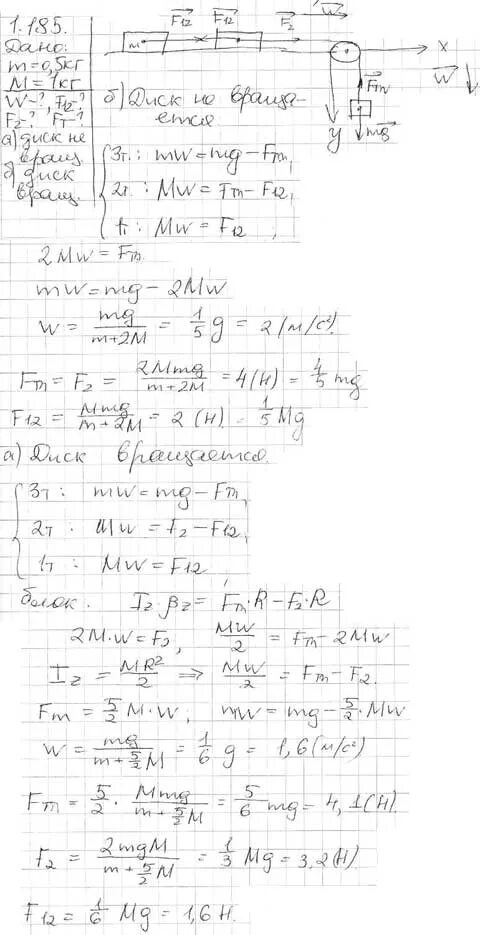 1.185.
Дано:
m=0,5кг
M=1кг
W-?, F12-?
F2-? Fт-?
а) диск не
вращ.
б) диск
вращ.
F12 F12 F2 W
m x
W
Fm
y mg
б) Диск не враща-
ется
3т: mw=mg-Fm,
2т: Mw=Fm-F12,
1т: Mw=F12,
2Mw=Fm
mw=mg-2Mw
w = mg/(m+2M) = 1/5 g = 2 (м/с²).
Fm = F2 = 2Mmg/(m+2M) = 4(Н) = 4/5 mg
F12 = Mmg/(m+2M) = 2 (Н) = 1/5 Mg
а) Диск вращается.
3т: mw=mg-Fm,
2т: Mw=F2-F12,
1т: Mw=F12
блок. Iz·βz = Fm·R-F2·R
2M·w=F2, Mw/2 = Fm-2Mw
Iz = MR²/2 ⇒ Mw/2 = Fm-F2.
Fm = 5/2 M·w; mw=mg-5/2·Mw
w = mg/(m+5/2M) = 1/6 g = 1,6(м/с²)
Fm = 5/2 · Mmg/(m+5/2M) = 5/6 mg = 4,1(Н).
F2 = 2mgM/(m+5/2M) = 1/3 Mg = 3,2(Н)
F12 = 1/6 Mg = 1,6 Н.